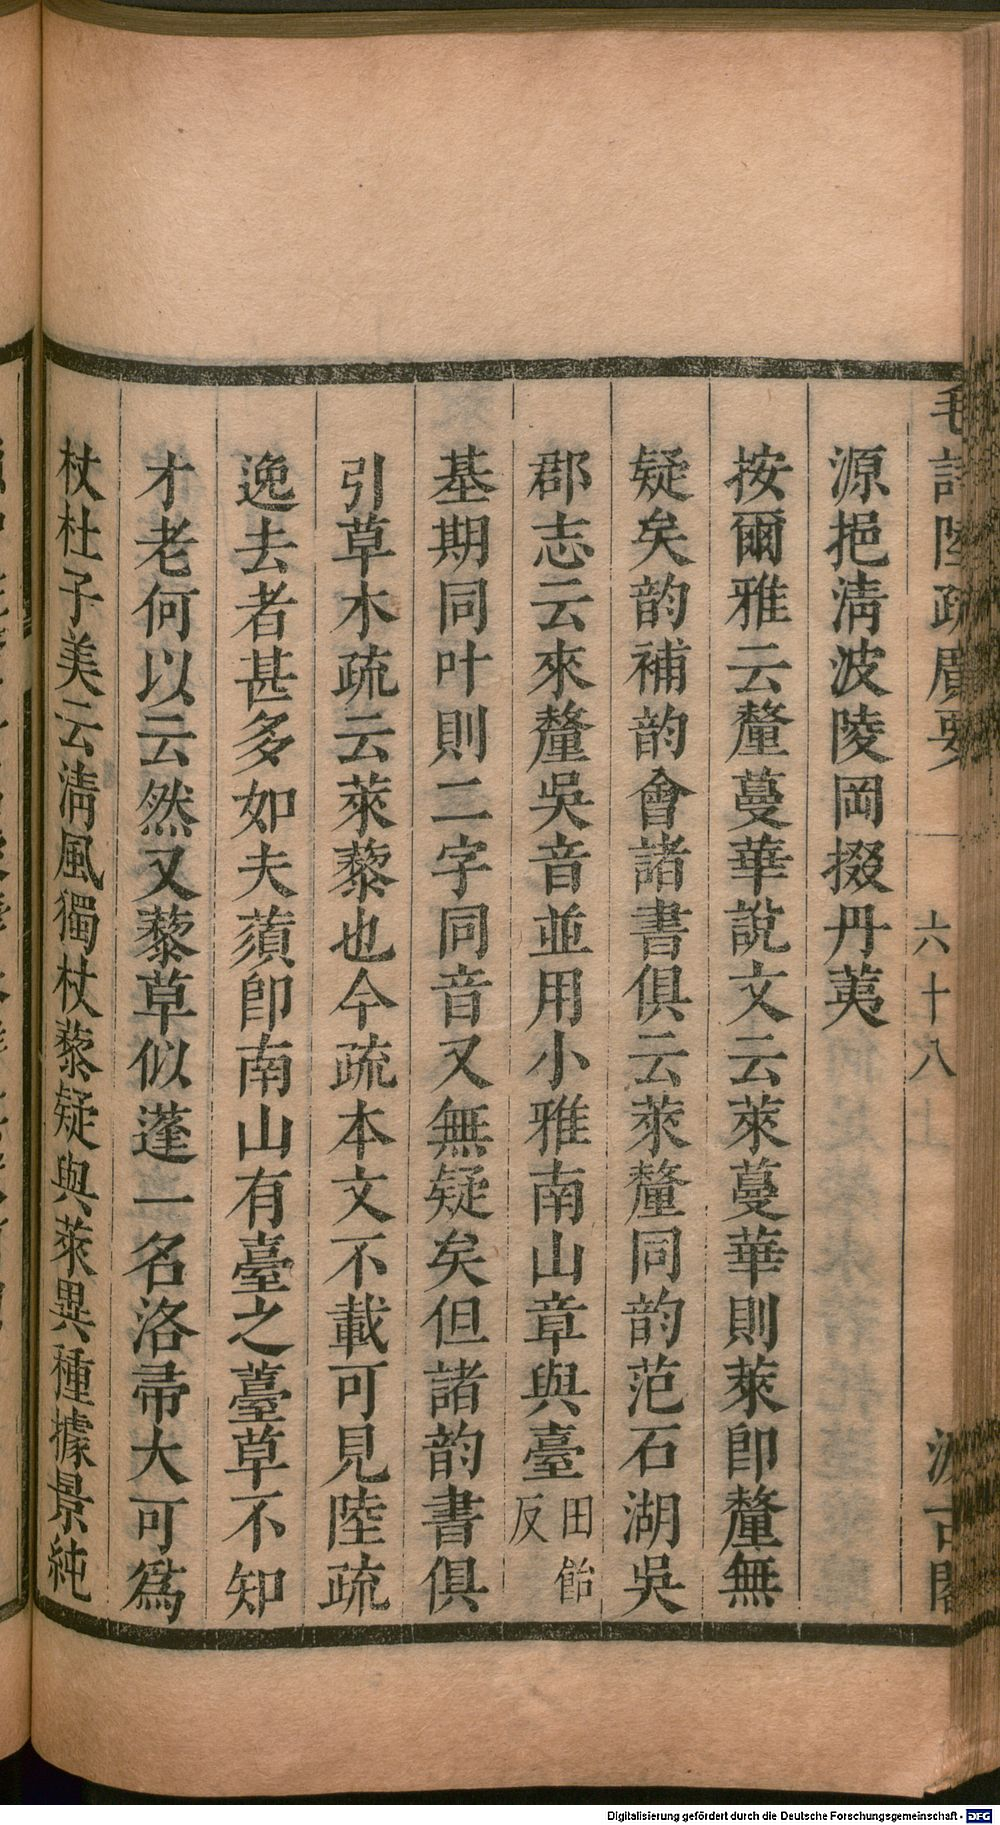 毛詩陸疏廣要
六十八
汲古閣
源挹清波陵岡掇丹荑
按爾雅云釐蔓華說文云萊蔓華則萊即釐無
疑矣韵補韵會諸書俱云萊釐同韵范石湖吳
郡志云來釐吳音並用小雅南山章與臺田飴反
基期同叶則二字同音又無疑矣但諸韵書俱
引草木疏云萊藜也今疏本文不載可見陸疏
逸去者甚多如夫蕦即南山有臺之薹草不知
才老何以云然又藜草似蓬一名洛帚大可爲
杖杜子美云清風獨杖藜疑與萊異種據景純
Digitalisierung gefördert durch die Deutsche Forschungsgemeinschaft - DFG